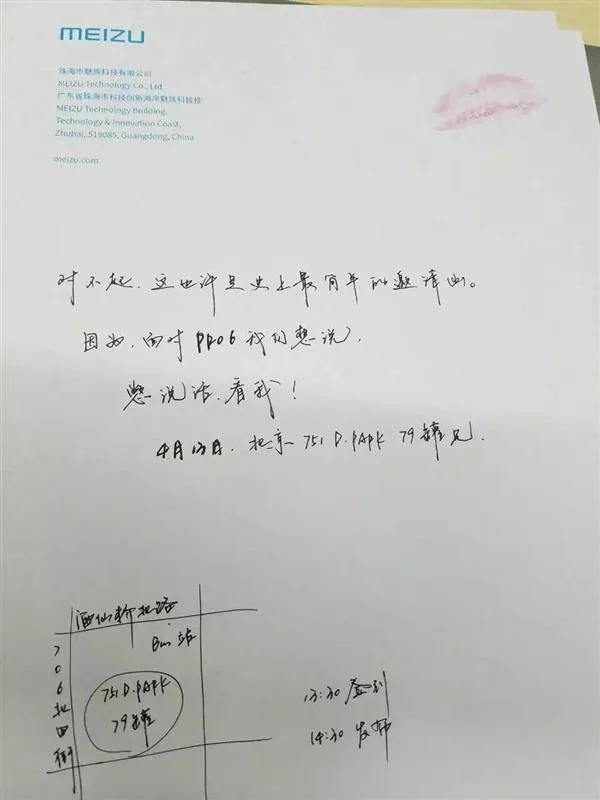 MEIZU
珠海市魅族科技有限公司
MEIZU Technology Co., Ltd
广东省珠海市科技创新海岸魅族科技楼
MEIZU Technology Building,
Technology & Innovation Coast,
Zhuhai, 519085, Guangdong, China
meizu.com
对不起，这也许是史上最简单的邀请函。
因为，面对 PRO6 我们想说，
憋说话，看我！
4月13日，北京 751 D·PARK 79罐见.
酒仙桥北路
Bus站
706北四街
751 D·PARK
79罐
13:30 签到
14:30 发布